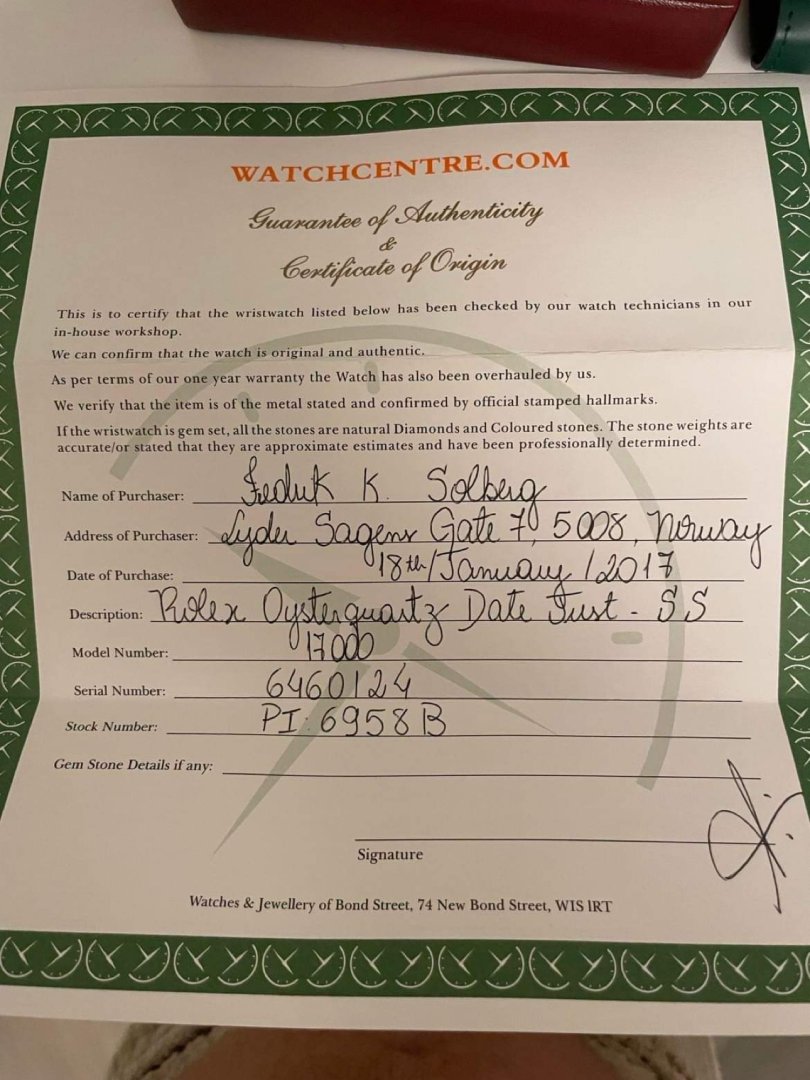 WATCHCENTRE.COM
Guarantee of Authenticity
&
Certificate of Origin
This is to certify that the wristwatch listed below has been checked by our watch technicians in our
in-house workshop.
We can confirm that the watch is original and authentic.
As per terms of our one year warranty the Watch has also been overhauled by us.
We verify that the item is of the metal stated and confirmed by official stamped hallmarks.
If the wristwatch is gem set, all the stones are natural Diamonds and Coloured stones. The stone weights are
accurate/or stated that they are approximate estimates and have been professionally determined.
Name of Purchaser: K. Solberg
Address of Purchaser: Lyder Sagens Gate 7, 5008, Norway
Date of Purchase: 18th/January/2017
Description: Rolex Oysterquartz Date Just - SS
Model Number: 17000
Serial Number: 6460124
Stock Number: PI: 6958B
Gem Stone Details if any:
Signature
Watches & Jewellery of Bond Street, 74 New Bond Street, W1S 1RT